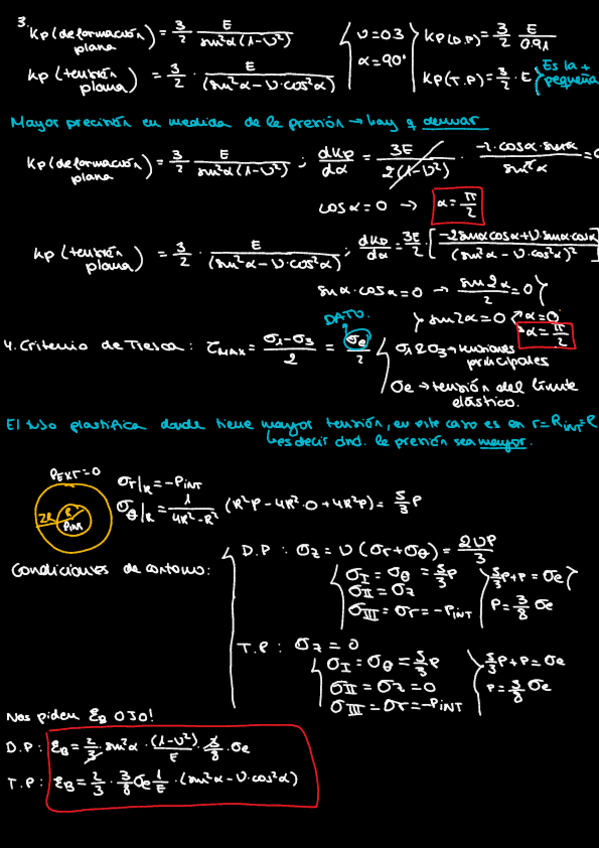 3. Kp (deformación plana) = 3/2 · E/(sin²α(1-υ²)) { υ=0.3 α=90° { Kp(D.P) = 3/2 E/0.91
Kp (tensión plana) = 3/2 · E/(sin²α - υ·cos²α) Kp(T.P) = 3/2 · E } Es la + pequeña
Mayor precisión en medida de la presión → hay q derivar
Kp (deformación plana) = 3/2 · E/(sin²α(1-υ²)) ; dKp/dα = 3E/2(1-υ²) · -2·cosα·sinα/sin⁴α = 0
cosα = 0 → α = π/2
Kp (tensión plana) = 3/2 · E/(sin²α - υ·cos²α) ; dKp/dα = 3E/2 · [-2sinαcosα+υ·sinα·cosα/(sin²α - υ·cos²α)²]
sinα·cosα = 0 → sin2α/2 = 0 }
} sin2α = 0 α=0 α = π/2
DATO.
4. Criterio de Tresca: τMAX = σ1-σ3/2 = σe/2 { σ1 σ3 → tensiones principales
σe → tensión del límite elástico.
El tubo plastifica donde tiene mayor tensión, en este caso es en r = RINT = R
↳ es decir dnd. la presión sea mayor.
PEXT = 0
2R R PINT
σr|R = -PINT
σθ|R = 1/(4R²-R²) (R²P - 4R²·0 + 4R²P) = 5/3 P
Condiciones de contorno:
D.P : σz = υ(σr+σθ) = 2υP/3
σI = σθ = 5/3 P
σII = σz
σIII = σr = -PINT
5/3 P + P = σe
P = 3/8 σe
T.P : σz = 0
σI = σθ = 5/3 P
σII = σz = 0
σIII = σr = -PINT
5/3 P + P = σe
P = 3/8 σe
Nos piden εB OJO!
D.P: εB = 2/3 · sin²α · (1-υ²)/E · 3/8 · σe
T.P: εB = 2/3 · 3/8 σe 1/E · (sin²α - υ·cos²α)